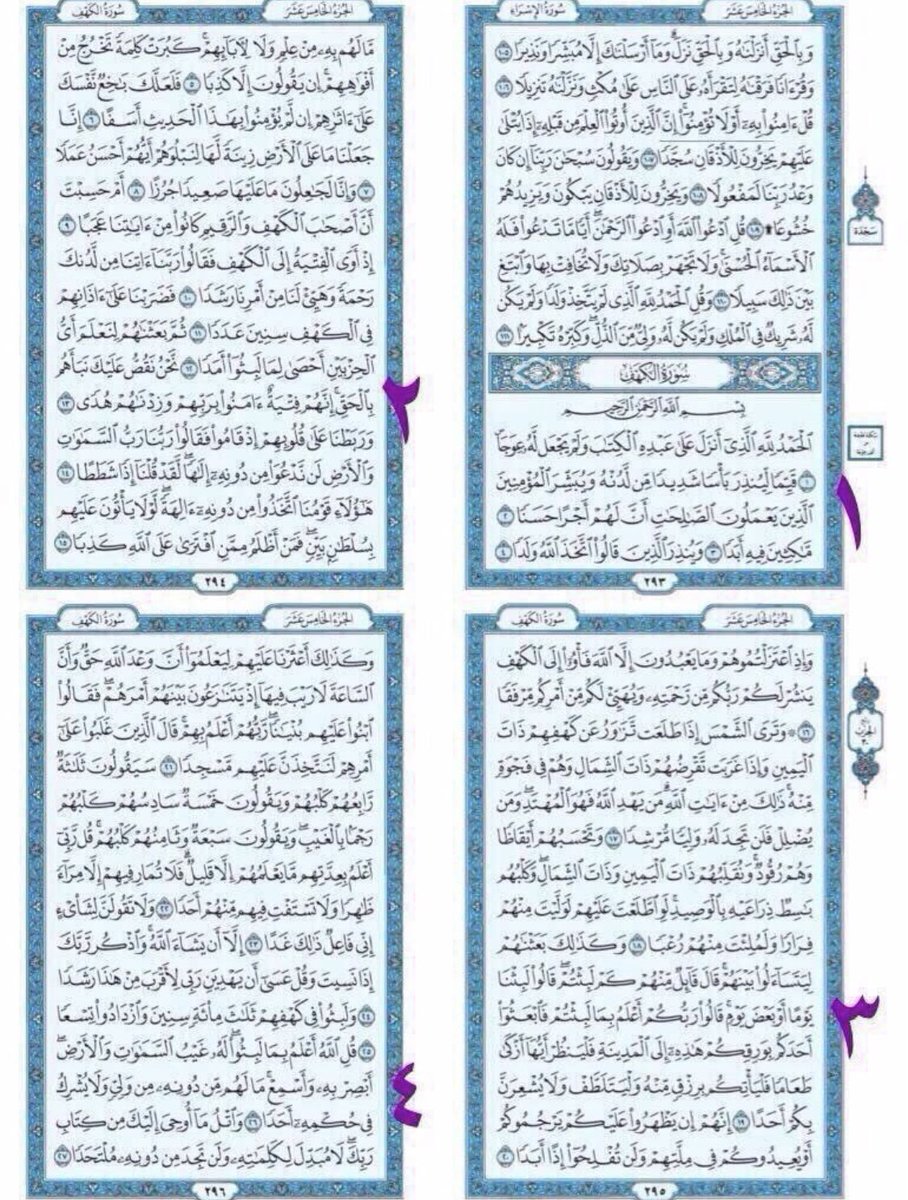 الجزء الخامس عشر
سورة الإسراء
وَبِالْحَقِّ أَنزَلْنَٰهُ وَبِالْحَقِّ نَزَلَ وَمَا أَرْسَلْنَٰكَ إِلَّا مُبَشِّرًا وَنَذِيرًا ١٠٥
وَقُرْءَانًا فَرَقْنَٰهُ لِتَقْرَأَهُ عَلَى النَّاسِ عَلَىٰ مُكْثٍ وَنَزَّلْنَٰهُ تَنزِيلًا ١٠٦
قُلْ ءَامِنُوا بِهِ أَوْ لَا تُؤْمِنُوا إِنَّ الَّذِينَ أُوتُوا الْعِلْمَ مِن قَبْلِهِ إِذَا يُتْلَىٰ
عَلَيْهِمْ يَخِرُّونَ لِلْأَذْقَانِ سُجَّدًا ١٠٧ وَيَقُولُونَ سُبْحَٰنَ رَبِّنَا إِن كَانَ
وَعْدُ رَبِّنَا لَمَفْعُولًا ١٠٨ وَيَخِرُّونَ لِلْأَذْقَانِ يَبْكُونَ وَيَزِيدُهُمْ
خُشُوعًا ۩ ١٠٩ قُلِ ادْعُوا اللَّهَ أَوِ ادْعُوا الرَّحْمَٰنَ أَيًّا مَّا تَدْعُوا فَلَهُ
الْأَسْمَاءُ الْحُسْنَىٰ وَلَا تَجْهَرْ بِصَلَاتِكَ وَلَا تُخَافِتْ بِهَا وَابْتَغِ
بَيْنَ ذَٰلِكَ سَبِيلًا ١١٠ وَقُلِ الْحَمْدُ لِلَّهِ الَّذِي لَمْ يَتَّخِذْ وَلَدًا وَلَمْ يَكُن
لَّهُ شَرِيكٌ فِي الْمُلْكِ وَلَمْ يَكُن لَّهُ وَلِيٌّ مِّنَ الذُّلِّ وَكَبِّرْهُ تَكْبِيرًا ١١١
سورة الكهف
بِسْمِ اللَّهِ الرَّحْمَٰنِ الرَّحِيمِ
الْحَمْدُ لِلَّهِ الَّذِي أَنزَلَ عَلَىٰ عَبْدِهِ الْكِتَٰبَ وَلَمْ يَجْعَل لَّهُ عِوَجًا
١ قَيِّمًا لِّيُنذِرَ بَأْسًا شَدِيدًا مِّن لَّدُنْهُ وَيُبَشِّرَ الْمُؤْمِنِينَ
الَّذِينَ يَعْمَلُونَ الصَّٰلِحَٰتِ أَنَّ لَهُمْ أَجْرًا حَسَنًا ٢
مَّٰكِثِينَ فِيهِ أَبَدًا ٣ وَيُنذِرَ الَّذِينَ قَالُوا اتَّخَذَ اللَّهُ وَلَدًا ٤
٢٩٣
سجدة
١
الجزء الخامس عشر
سورة الكهف
مَّا لَهُم بِهِ مِنْ عِلْمٍ وَلَا لِآبَائِهِمْ كَبُرَتْ كَلِمَةً تَخْرُجُ مِنْ
أَفْوَٰهِهِمْ إِن يَقُولُونَ إِلَّا كَذِبًا ٥ فَلَعَلَّكَ بَٰخِعٌ نَّفْسَكَ
عَلَىٰ ءَاثَٰرِهِمْ إِن لَّمْ يُؤْمِنُوا بِهَٰذَا الْحَدِيثِ أَسَفًا ٦ إِنَّا
جَعَلْنَا مَا عَلَى الْأَرْضِ زِينَةً لَّهَا لِنَبْلُوَهُمْ أَيُّهُمْ أَحْسَنُ عَمَلًا
٧ وَإِنَّا لَجَٰعِلُونَ مَا عَلَيْهَا صَعِيدًا جُرُزًا ٨ أَمْ حَسِبْتَ
أَنَّ أَصْحَٰبَ الْكَهْفِ وَالرَّقِيمِ كَانُوا مِنْ ءَايَٰتِنَا عَجَبًا ٩
إِذْ أَوَى الْفِتْيَةُ إِلَى الْكَهْفِ فَقَالُوا رَبَّنَا ءَاتِنَا مِن لَّدُنكَ
رَحْمَةً وَهَيِّئْ لَنَا مِنْ أَمْرِنَا رَشَدًا ١٠ فَضَرَبْنَا عَلَىٰ ءَاذَانِهِمْ
فِي الْكَهْفِ سِنِينَ عَدَدًا ١١ ثُمَّ بَعَثْنَٰهُمْ لِنَعْلَمَ أَيُّ
الْحِزْبَيْنِ أَحْصَىٰ لِمَا لَبِثُوا أَمَدًا ١٢ نَّحْنُ نَقُصُّ عَلَيْكَ نَبَأَهُم
بِالْحَقِّ إِنَّهُمْ فِتْيَةٌ ءَامَنُوا بِرَبِّهِمْ وَزِدْنَٰهُمْ هُدًى ١٣
وَرَبَطْنَا عَلَىٰ قُلُوبِهِمْ إِذْ قَامُوا فَقَالُوا رَبُّنَا رَبُّ السَّمَٰوَٰتِ
وَالْأَرْضِ لَن نَّدْعُوَا مِن دُونِهِ إِلَٰهًا لَّقَدْ قُلْنَا إِذًا شَطَطًا ١٤
هَٰؤُلَاءِ قَوْمُنَا اتَّخَذُوا مِن دُونِهِ ءَالِهَةً لَّوْلَا يَأْتُونَ عَلَيْهِم
بِسُلْطَٰنٍ بَيِّنٍ فَمَنْ أَظْلَمُ مِمَّنِ افْتَرَىٰ عَلَى اللَّهِ كَذِبًا ١٥
٢٩٤
٢
الجزء الخامس عشر
سورة الكهف
وَإِذِ اعْتَزَلْتُمُوهُمْ وَمَا يَعْبُدُونَ إِلَّا اللَّهَ فَأْوُوا إِلَى الْكَهْفِ
يَنشُرْ لَكُمْ رَبُّكُم مِّن رَّحْمَتِهِ وَيُهَيِّئْ لَكُم مِّنْ أَمْرِكُم مِّرْفَقًا
١٦ ۞ وَتَرَى الشَّمْسَ إِذَا طَلَعَت تَّزَٰوَرُ عَن كَهْفِهِمْ ذَاتَ
الْيَمِينِ وَإِذَا غَرَبَت تَّقْرِضُهُمْ ذَاتَ الشِّمَالِ وَهُمْ فِي فَجْوَةٍ
مِّنْهُ ذَٰلِكَ مِنْ ءَايَٰتِ اللَّهِ مَن يَهْدِ اللَّهُ فَهُوَ الْمُهْتَدِ وَمَن
يُضْلِلْ فَلَن تَجِدَ لَهُ وَلِيًّا مُّرْشِدًا ١٧ وَتَحْسَبُهُمْ أَيْقَاظًا
وَهُمْ رُقُودٌ وَنُقَلِّبُهُمْ ذَاتَ الْيَمِينِ وَذَاتَ الشِّمَالِ وَكَلْبُهُم
بَٰسِطٌ ذِرَاعَيْهِ بِالْوَصِيدِ لَوِ اطَّلَعْتَ عَلَيْهِمْ لَوَلَّيْتَ مِنْهُمْ
فِرَارًا وَلَمُلِئْتَ مِنْهُمْ رُعْبًا ١٨ وَكَذَٰلِكَ بَعَثْنَٰهُمْ
لِيَتَسَاءَلُوا بَيْنَهُمْ قَالَ قَائِلٌ مِّنْهُمْ كَمْ لَبِثْتُمْ قَالُوا لَبِثْنَا
يَوْمًا أَوْ بَعْضَ يَوْمٍ قَالُوا رَبُّكُمْ أَعْلَمُ بِمَا لَبِثْتُمْ فَابْعَثُوا
أَحَدَكُم بِوَرِقِكُمْ هَٰذِهِ إِلَى الْمَدِينَةِ فَلْيَنظُرْ أَيُّهَا أَزْكَىٰ
طَعَامًا فَلْيَأْتِكُم بِرِزْقٍ مِّنْهُ وَلْيَتَلَطَّفْ وَلَا يُشْعِرَنَّ
بِكُمْ أَحَدًا ١٩ إِنَّهُمْ إِن يَظْهَرُوا عَلَيْكُمْ يَرْجُمُوكُمْ
أَوْ يُعِيدُوكُمْ فِي مِلَّتِهِمْ وَلَن تُفْلِحُوا إِذًا أَبَدًا ٢٠
٢٩٥
٣
الجزء الخامس عشر
سورة الكهف
وَكَذَٰلِكَ أَعْثَرْنَا عَلَيْهِمْ لِيَعْلَمُوا أَنَّ وَعْدَ اللَّهِ حَقٌّ وَأَنَّ
السَّاعَةَ لَا رَيْبَ فِيهَا إِذْ يَتَنَٰزَعُونَ بَيْنَهُمْ أَمْرَهُمْ فَقَالُوا
ابْنُوا عَلَيْهِم بُنْيَٰنًا رَّبُّهُمْ أَعْلَمُ بِهِمْ قَالَ الَّذِينَ غَلَبُوا عَلَىٰ
أَمْرِهِمْ لَنَتَّخِذَنَّ عَلَيْهِم مَّسْجِدًا ٢١ سَيَقُولُونَ ثَلَٰثَةٌ
رَّابِعُهُمْ كَلْبُهُمْ وَيَقُولُونَ خَمْسَةٌ سَادِسُهُمْ كَلْبُهُمْ
رَجْمًا بِالْغَيْبِ وَيَقُولُونَ سَبْعَةٌ وَثَامِنُهُمْ كَلْبُهُمْ قُل رَّبِّي
أَعْلَمُ بِعِدَّتِهِم مَّا يَعْلَمُهُمْ إِلَّا قَلِيلٌ فَلَا تُمَارِ فِيهِمْ إِلَّا مِرَاءً
ظَٰهِرًا وَلَا تَسْتَفْتِ فِيهِم مِّنْهُمْ أَحَدًا ٢٢ وَلَا تَقُولَنَّ لِشَا۟يْءٍ
إِنِّي فَاعِلٌ ذَٰلِكَ غَدًا ٢٣ إِلَّا أَن يَشَاءَ اللَّهُ وَاذْكُر رَّبَّكَ
إِذَا نَسِيتَ وَقُلْ عَسَىٰ أَن يَهْدِيَنِ رَبِّي لِأَقْرَبَ مِنْ هَٰذَا رَشَدًا
٢٤ وَلَبِثُوا فِي كَهْفِهِمْ ثَلَٰثَ مِائَةٍ سِنِينَ وَازْدَادُوا تِسْعًا
٢٥ قُلِ اللَّهُ أَعْلَمُ بِمَا لَبِثُوا لَهُ غَيْبُ السَّمَٰوَٰتِ وَالْأَرْضِ
أَبْصِرْ بِهِ وَأَسْمِعْ مَا لَهُم مِّن دُونِهِ مِن وَلِيٍّ وَلَا يُشْرِكُ
فِي حُكْمِهِ أَحَدًا ٢٦ وَاتْلُ مَا أُوحِيَ إِلَيْكَ مِن كِتَابِ
رَبِّكَ لَا مُبَدِّلَ لِكَلِمَٰتِهِ وَلَن تَجِدَ مِن دُونِهِ مُلْتَحَدًا ٢٧
٢٩٦
٤